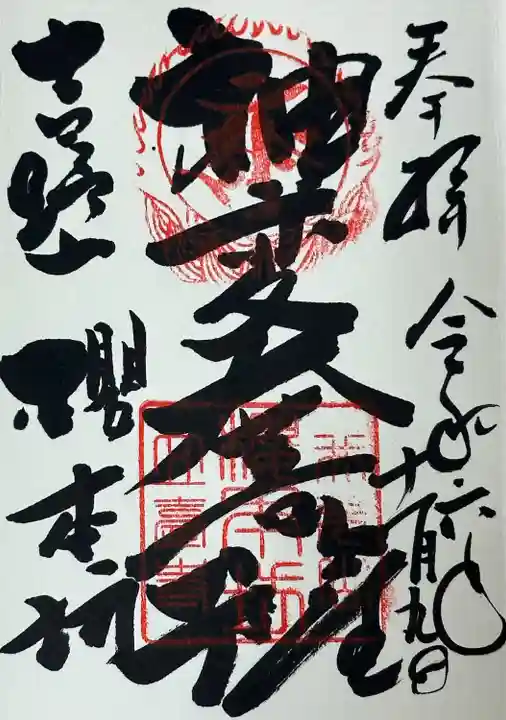 奉拝 令和六年十一月九日
神変大菩薩
吉野山 櫻本坊